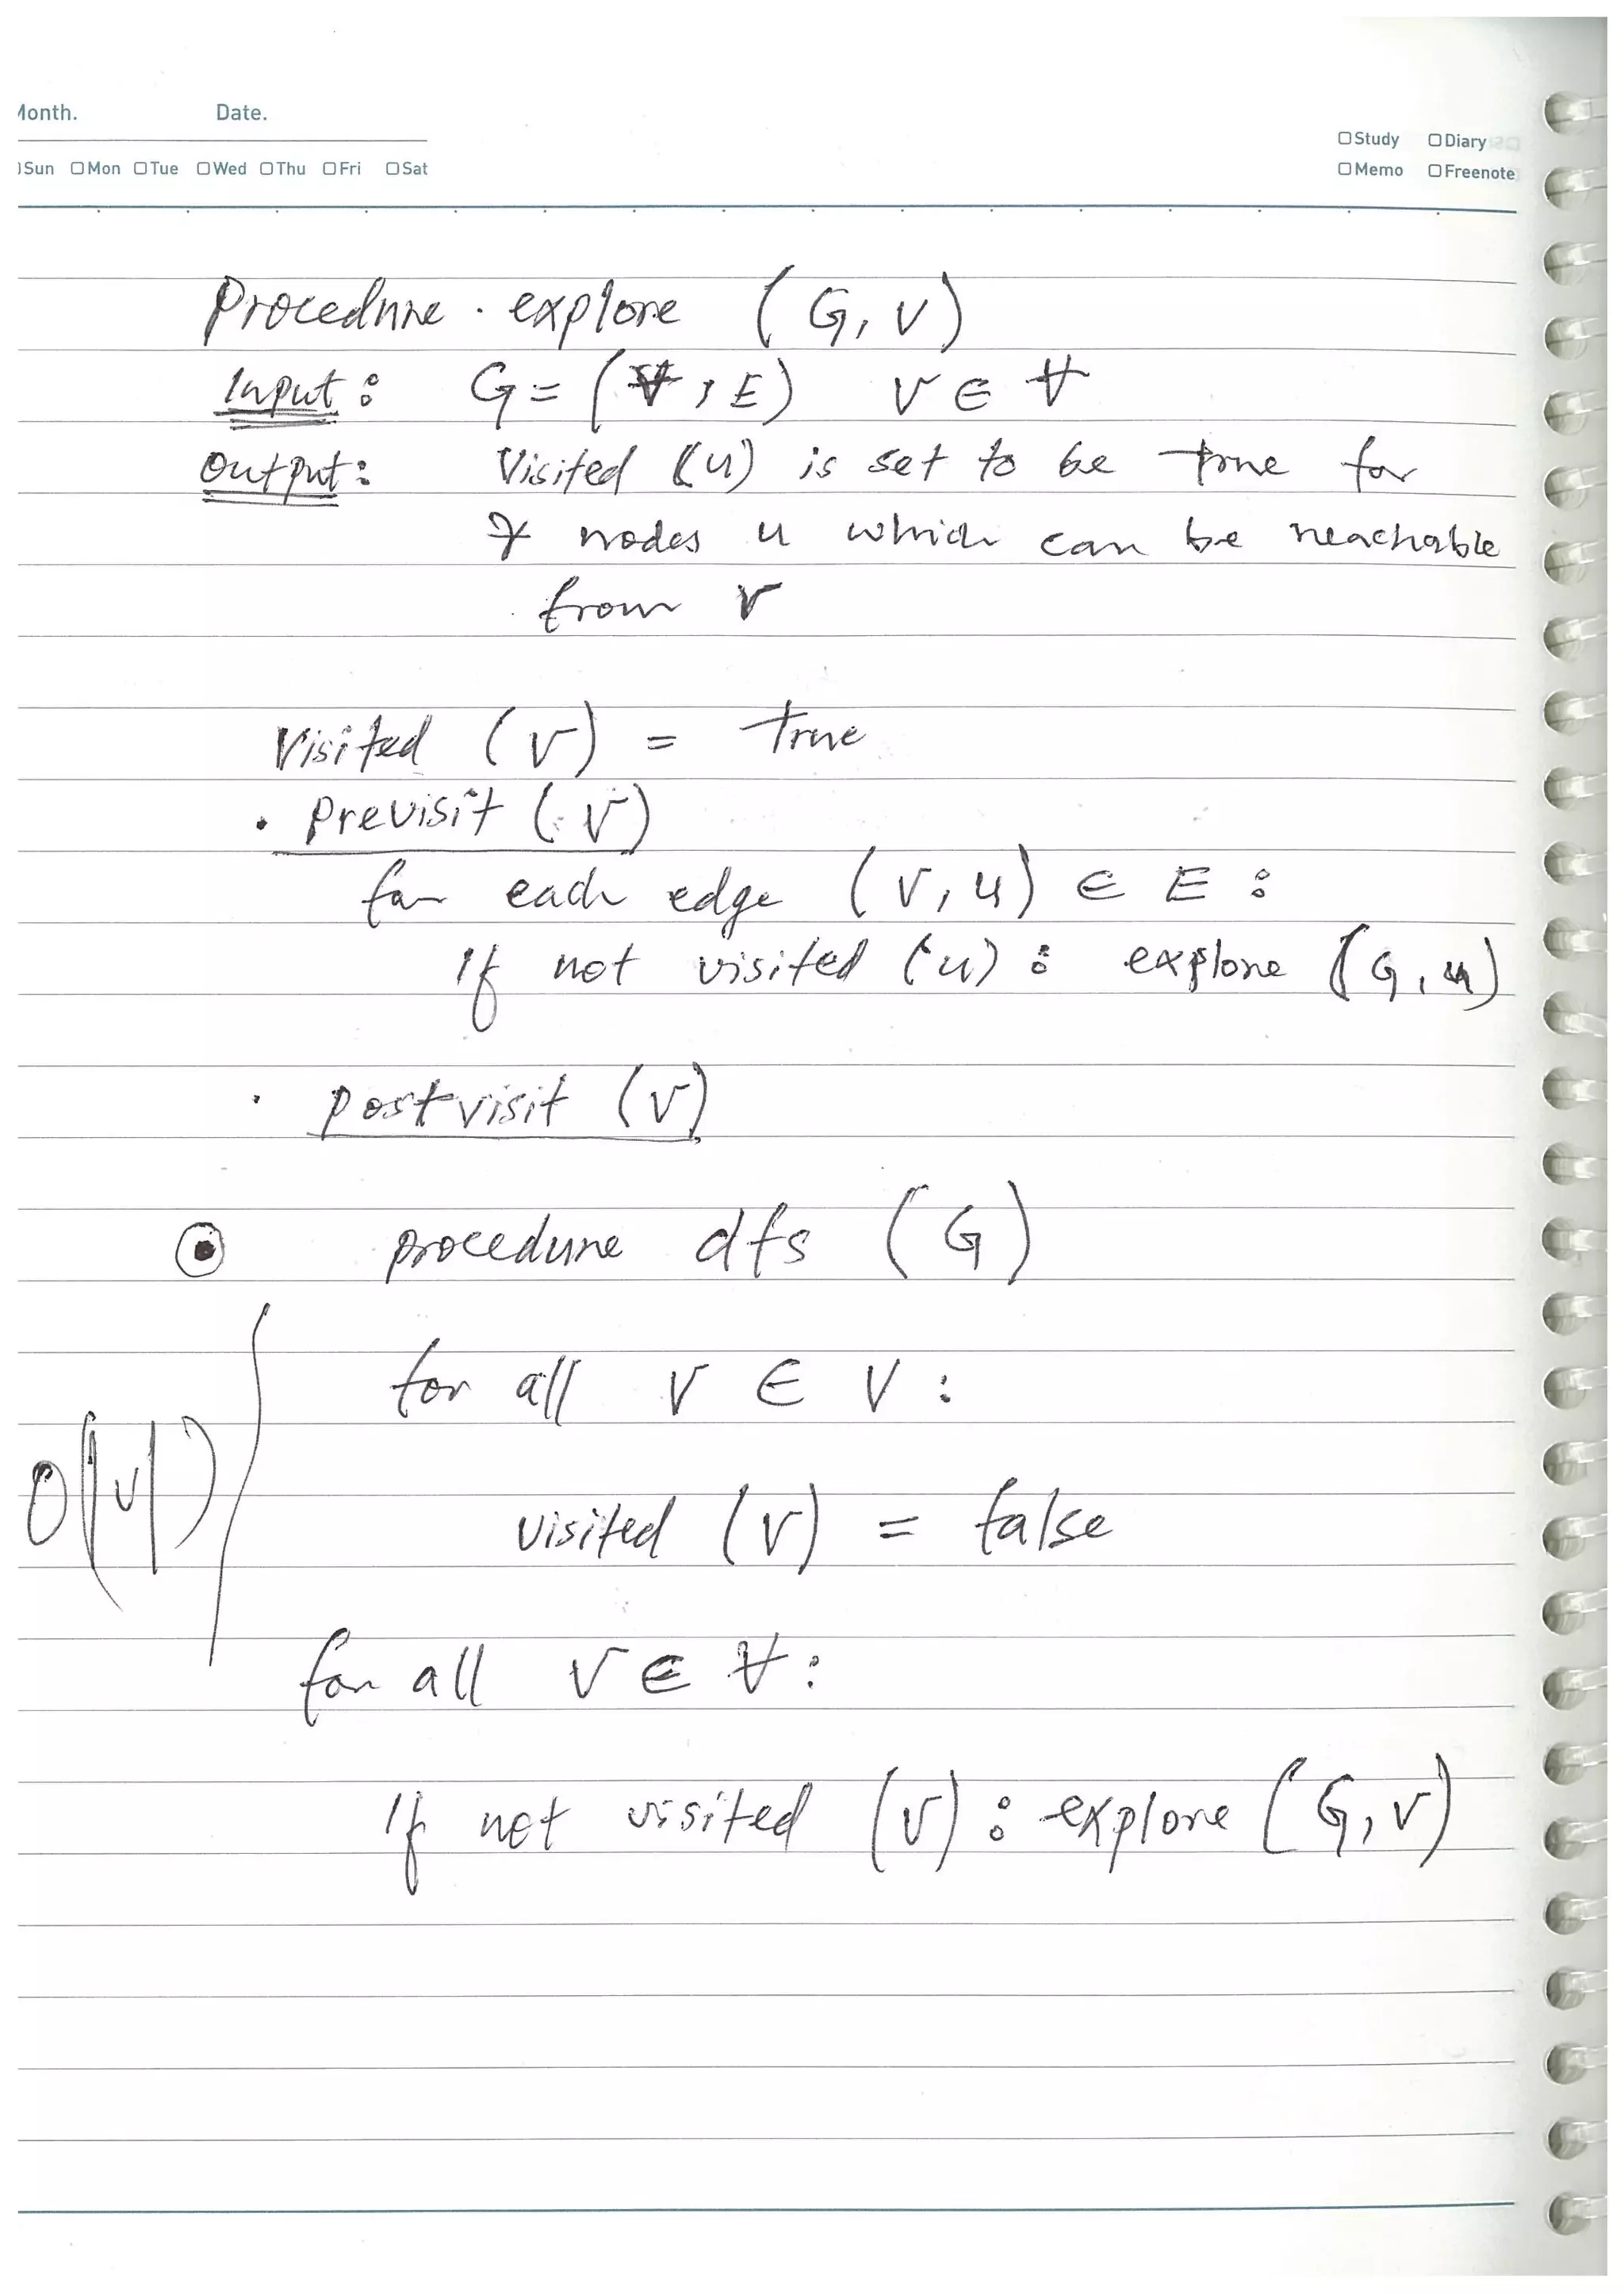 Month. Date.
Sun Mon Tue Wed Thu Fri Sat
Study Diary
Memo Freenote
Procedure . explore (G, V)
Input: G = (V, E) v ∈ V
Output: Visited (u) is set to be true for
∀ nodes u which can be reachable
from v
Visited (v) = true
. previsit (v)
for each edge (v, u) ∈ E :
if not visited (u) : explore (G, u)
. postvisit (v)
⊙ procedure dfs (G)
for all v ∈ V :
O(|V|)
visited (v) = false
for all v ∈ V :
if not visited (v) : explore (G, v)